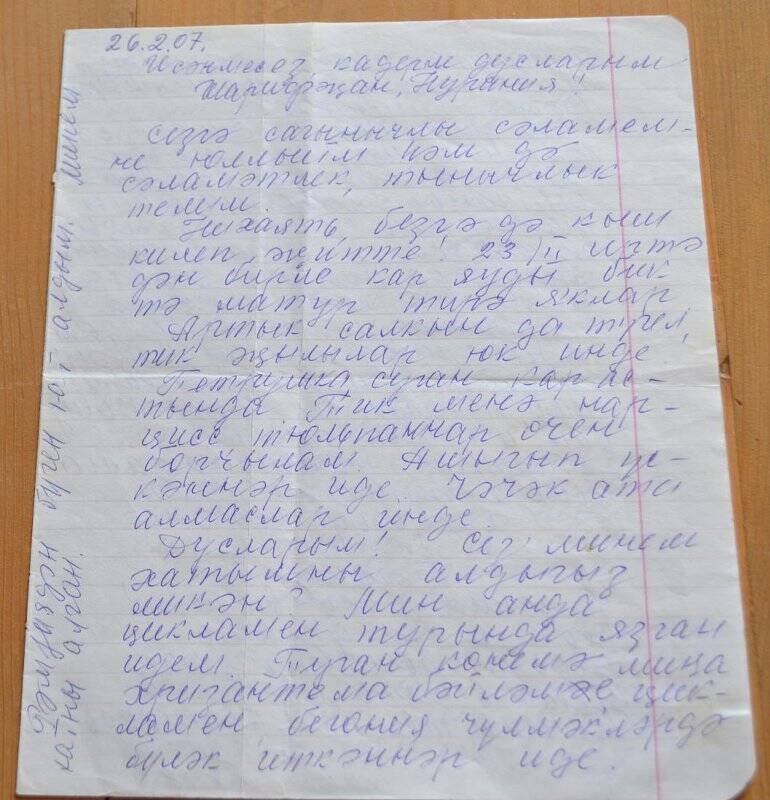 26.2.07.
Исәнмесез, кадерле дусларым
Шарифҗан, Нурания!
Сезгә сагынычлы сәламем-
не юллыйм һәм дә
сәламәтлек, тынычлык
телим.
Нихаять, безгә дә кыш
килеп җитте! 23/II иртә
дән бирле кар яуды бик
тә матур тирә яклар
Артык салкын да түгел,
тик җылылар юк инде.
Петрушка суган кар ас-
тында Тик менә нар-
цисс тюльпаннар өчен
борчылам. Ашыгып үс-
кәннәр иде. Чәчәк ата
алмаслар инде.
Дусларым! Сез минем
хатымны алдыгыз
микән? Мин анда
цикламен турында язган
идем. Туган көнемә миңа
хризантема бәйләме цик-
ламен бегония чүлмәкләрдә
бүләк иткәннәр иде.
Рәмзиядән бүген хат алдым. Минем
хатны алган.